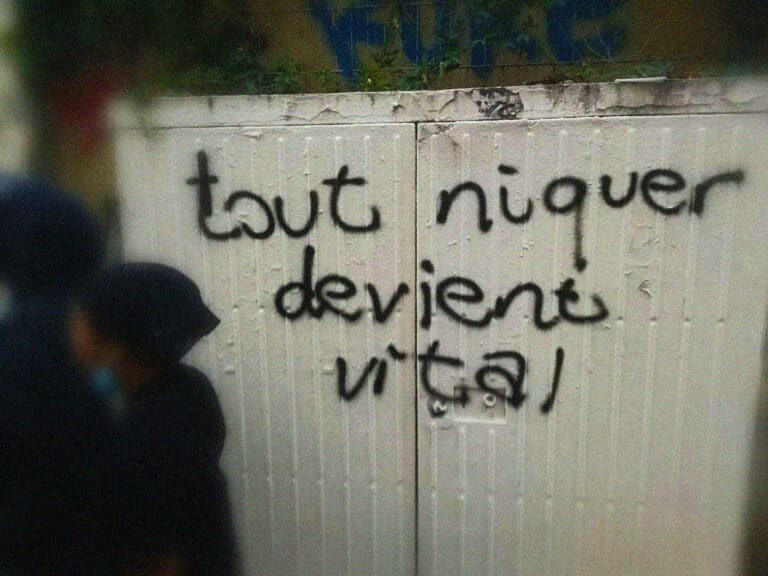 tout niquer
devient
vital